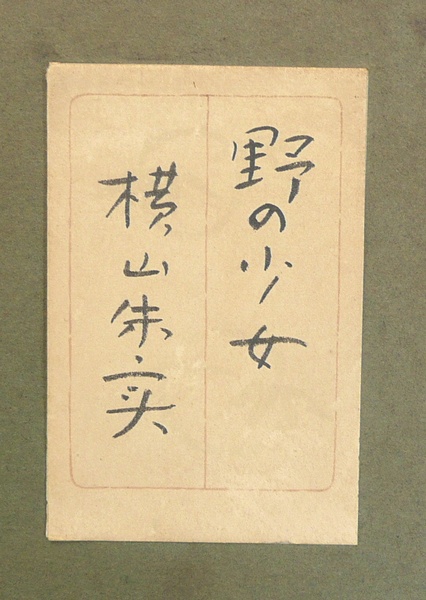 野の少女
横山朱実